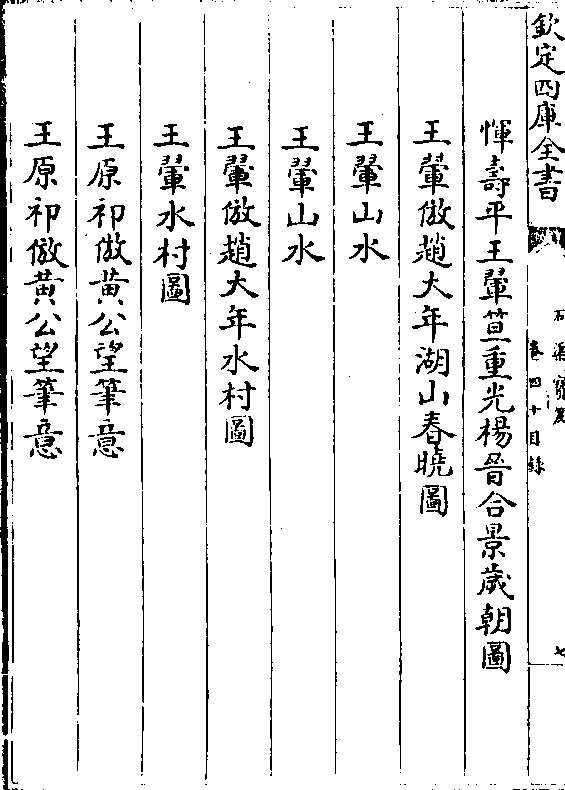 欽定四庫全書
石渠寳笈
卷四十目録
七
惲壽平王翬笪重光楊晉合景歲朝圖
王翬倣趙大年湖山春曉圖
王翬山水
王翬山水
王翬倣趙大年水村圖
王翬水村圖
王原祁倣黄公望筆意
王原祁倣黄公望筆意